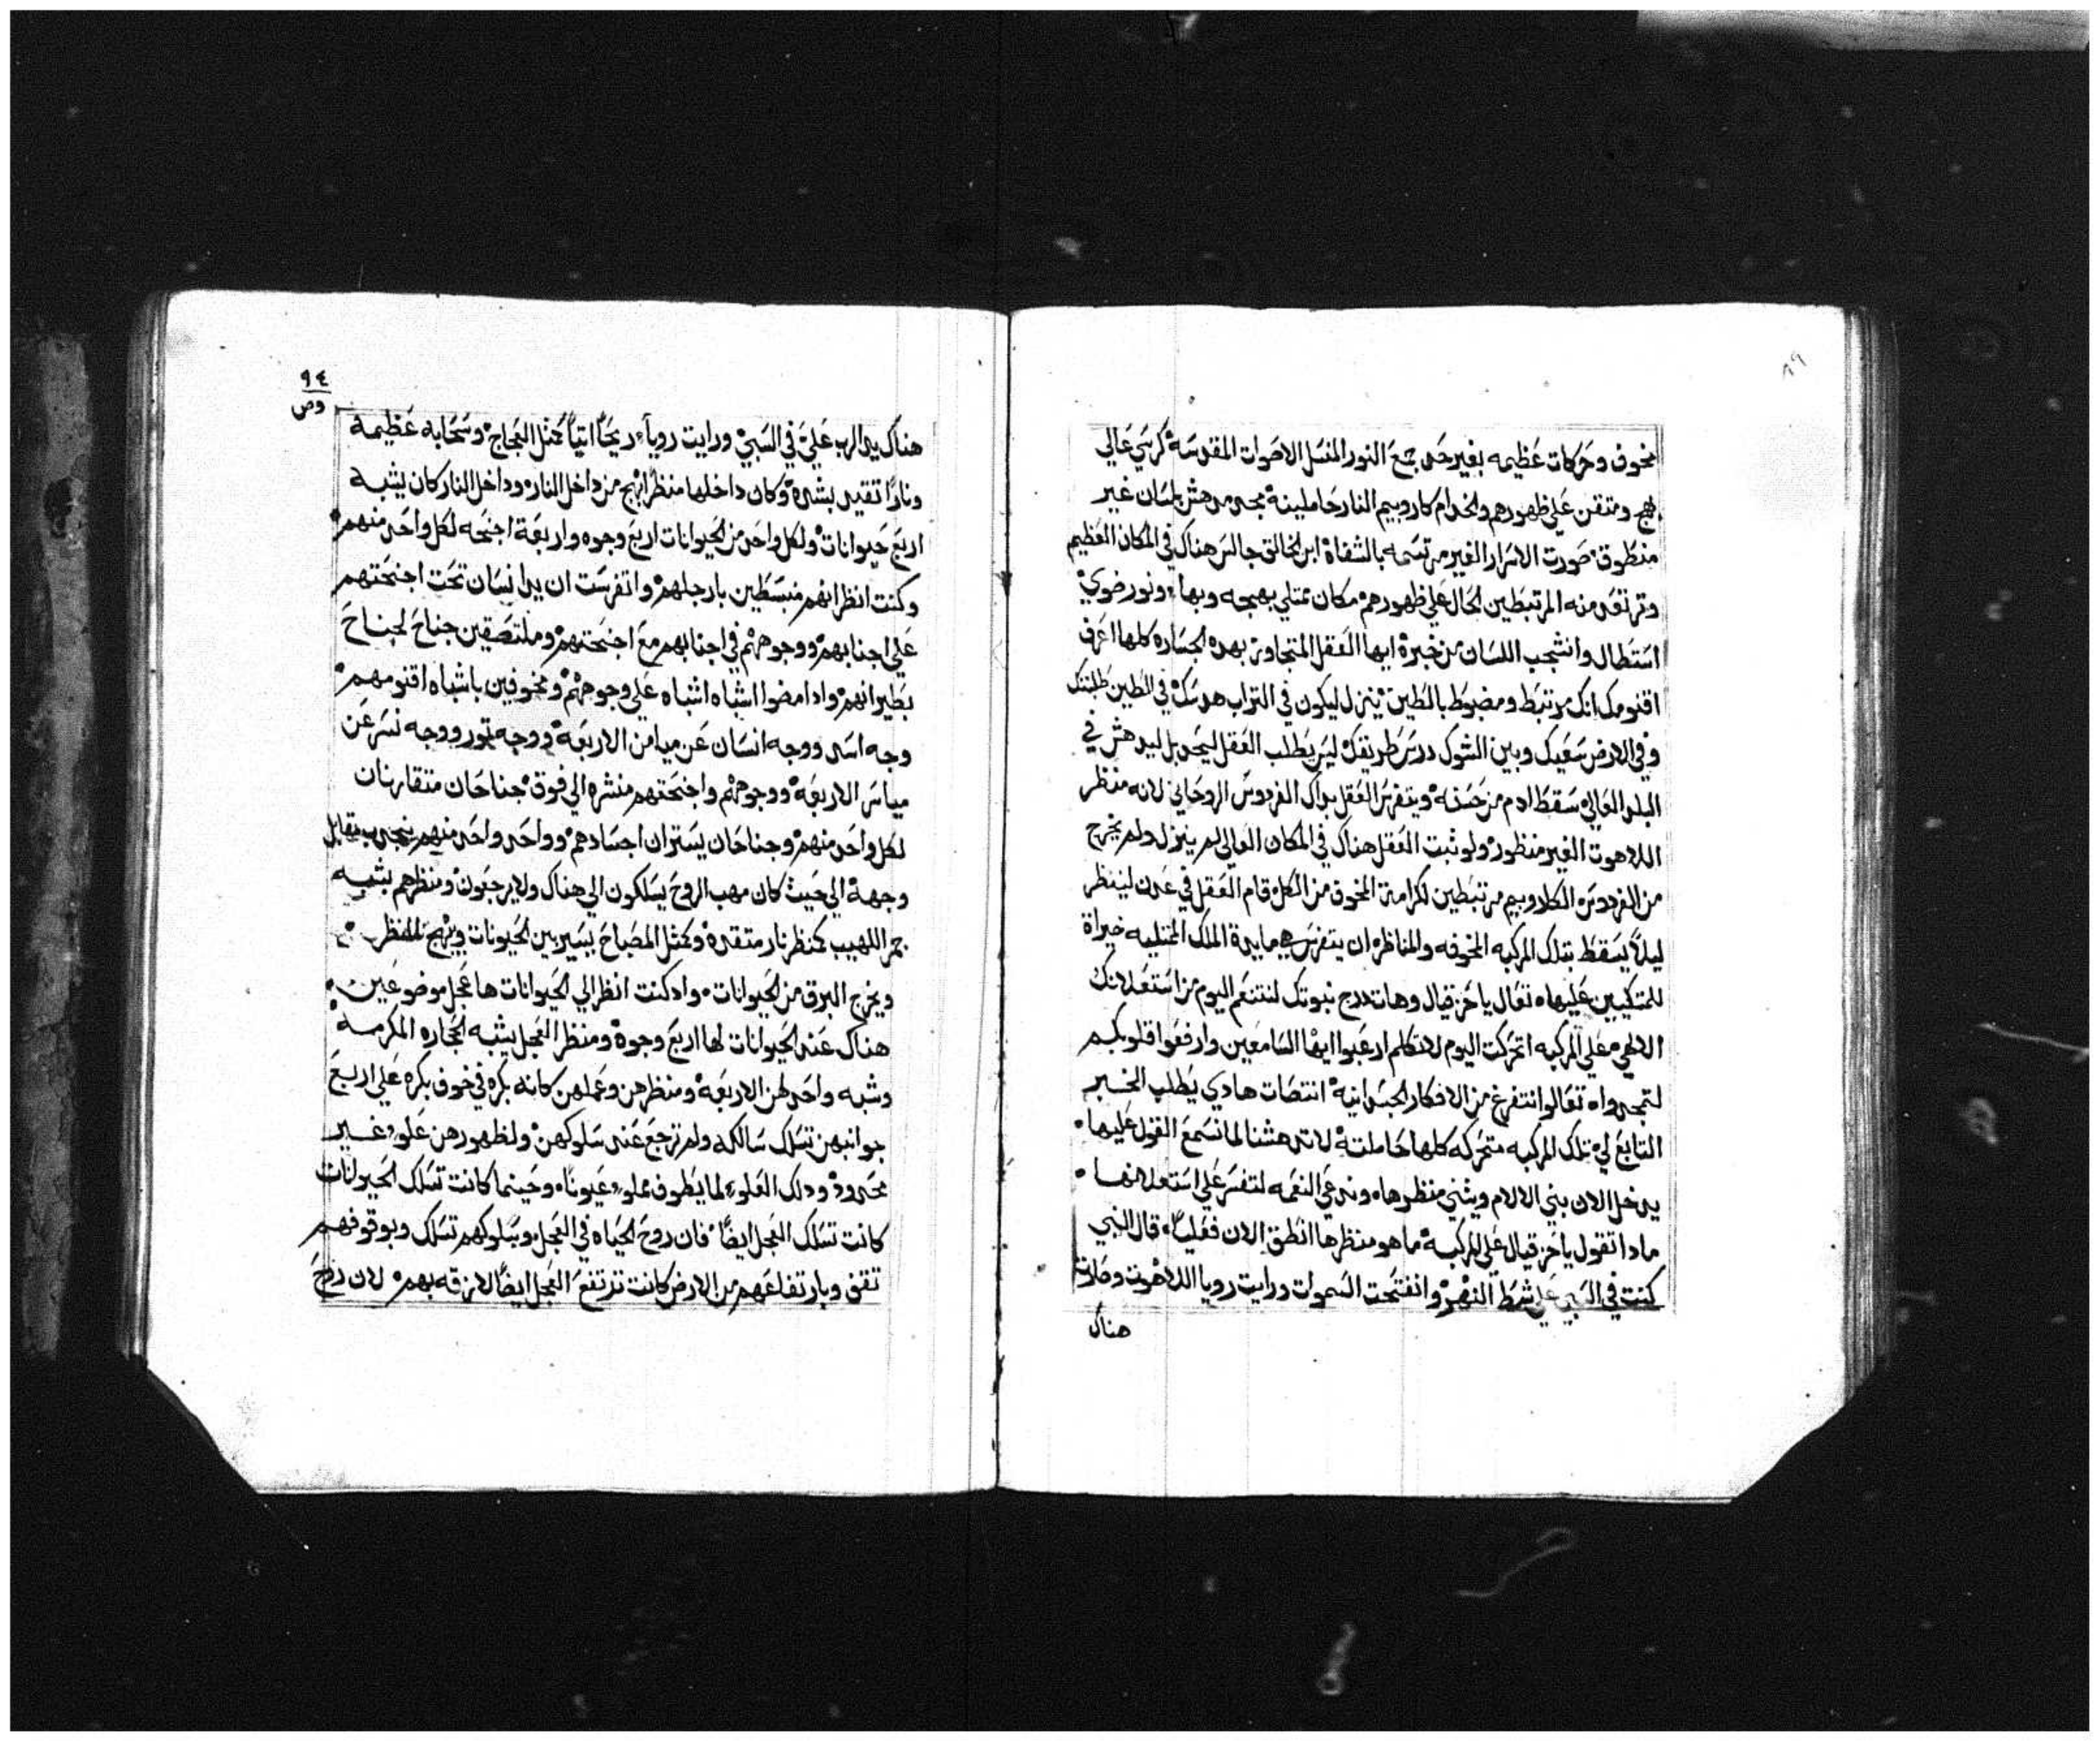 ٨٩
مخوف وحركات عظيمه بغير حد جمع النور المنسل الاصوات المقدسة كرسي عالي
ومتقن علي ظهورهم والخدام كاروبيم النار حاملينة مجد مدهش بلسان غير
منطوق صورت الاسرار الغير مرتسمه بالشفاة ابن الخالق جالس هناك في المكان العظيم
وترتعد منه المرتبطين الحال علي ظهورهم مكان ممتلي بهجه وبها ونور ضوي
استطال وانشجب اللسان من خبرة ايها العقل المتجاوز بهده الجساره كلها اعرف
اقنومك انك مرتبط ومضبوط بالطين ينزل ليكون في التراب هدسك في الطين
وفي الارض سعيك وبين الشوك درس طريقك ليس يطلب العقل ليحد بل ليدهش في
البلد العالي سقط ادم من حسنه ويتفرس العقل بداك الفردوس الروحاني لانه منظر
اللاهوت الغير منظور ولو ثبت العقل هناك في المكان العالي لم ينزل ولم يخرج
من الفردوس الكلاروبيم مرتبطين لكرامة المخوف من الكل قام العقل في عدن لينظر
ليلا يسقط بتلك المركبه المخوفه والمناظره ان يتفرس بها بايدة الملك الممتليه خيراة
للمتكيين عليها تعال يا حزقيال وهات درج نبوتك لنتنعم اليوم من استعلانك
الالهي علي المركبه اتحركت اليوم لاتكلم ارعبوا ايها السامعين وارفعوا قلوبكم
لتمجدوا تعالوا نتفرغ من الافكار الجسدانية انتصات هادي يطلب الخبر
التابع لي تلك المركبه متحركه كلها حاملتة لا تدهشنا لما نسمع القول عليها
يدخل الان بني الالام ويثني منظرها وندعي النعمه لتفسر علي استعلانها
مادا تقول يا حزقيال علي المركبة ما هو منظرها انطق الان فعليا قال النبي
كنت في السبي علي شط النهر وانفتحت السموات ورايت رويا اللاهوت وصارت
هناك
٩٤
هناك يد الرب علي في السبي ورايت رويا ريحا اتيا كمثل العجاج وسحابه عظيمة
ونارا تقيد بشدة وكان داخلها منظر ابهج من داخل النار وداخل النار كان يشبه
اربع حيوانات ولكل واحد من الحيوانات اربع وجوه واربعة اجنحه لكل واحد منهم
وكنت انظر انهم منبسطين بارجلهم واتفرست ان يد انسان تحت اجنحتهم
علي اجنابهم ووجوههم في اجنابهم مع اجنحتهم وملتصقين جناح لجناح
بطيرانهم وادا مضوا اشباه اشباه علي وجوههم ومخوفين باشباه اقنومهم
وجه اسد ووجه انسان عن ميامن الاربعة ووجه تور ووجه نسر عن
مياسر الاربعة ووجوههم واجنحتهم منشره الي فوق جناحان متقارنان
لكل واحد منهم وجناحان يستران اجسادهم وواحد واحد منهم ينجدب مقابل
وجهة الي حيث كان مهب الروح يسلكون الي هناك ولا يرجعون ومنظرهم يشبه
جمر اللهيب كمنظر نار متقدة وكمثل المصباح يسير بين الحيونات ويبهج المنظر
ويخرج البرق من الحيوانات وادكنت انظر الي الحيوانات ها عجل موضوعين
هناك عند الحيوانات لها اربع وجوة ومنظر العجل يشبه الحجاره المكرمه
وشبه واحد لهن الاربعة ومنظرهن وعملهن كانه بكره في خوف بكره علي اربع
جوانبهن تسلك سالكه ولم ترجع عند سلوكهن ولظهورهن علو غير
محدود ودلك العلو لما يطوف مملو عيونا وحينما كانت تسلك الحيوانات
كانت تسلك العجل ايضا فان روح الحياه في العجل وبسلوكهم تسلك وبوقوفهم
تقف وبارتفاعهم من الارض كانت ترتفع العجل ايضا لازقه بهم لان روح